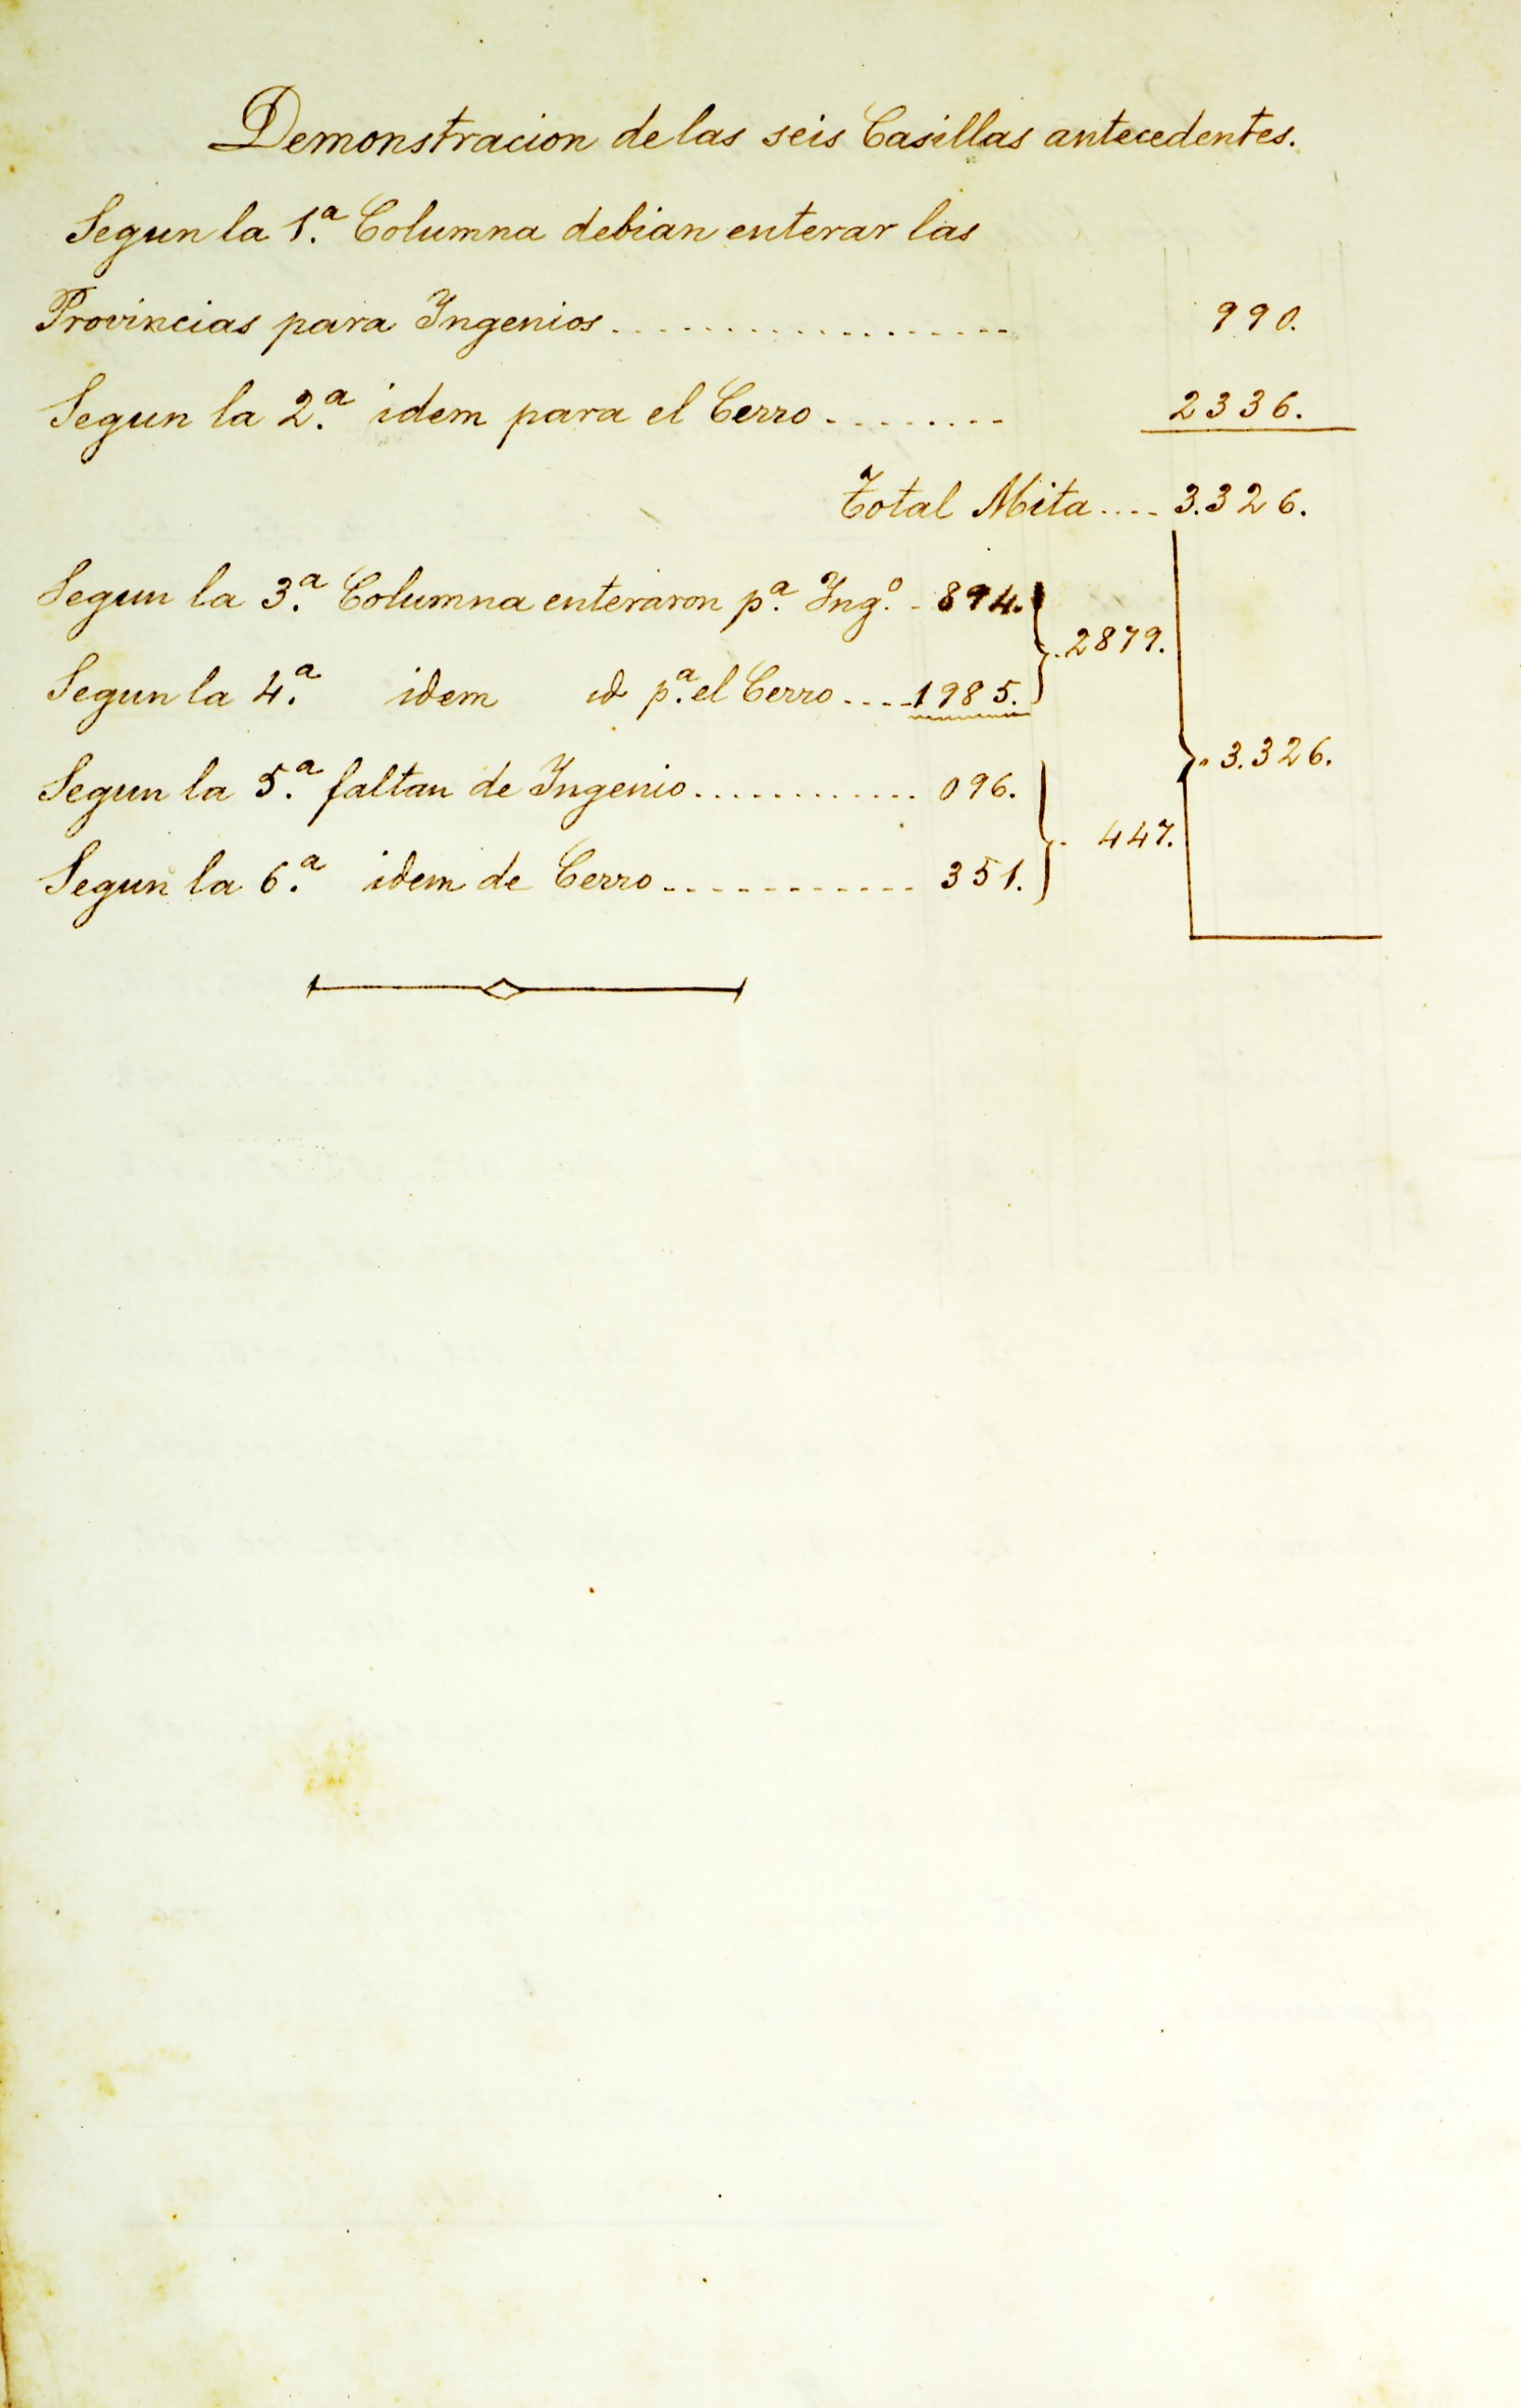 Demonstracion de las seis Casillas antecedentes.
Segun la 1.ª Columna debian enterar las
Provincias para Ingenios.................... 990.
Segun la 2.ª idem para el Cerro......... 2336.
Total Mita.... 3.326.
Segun la 3.ª Columna enteraron p.ª Ing.º - 894.
2879.
Segun la 4.ª idem id p.ª el Cerro....1985.
3.326.
Segun la 5.ª faltan de Ingenio............. 096.
447.
Segun la 6.ª idem de Cerro............. 351.